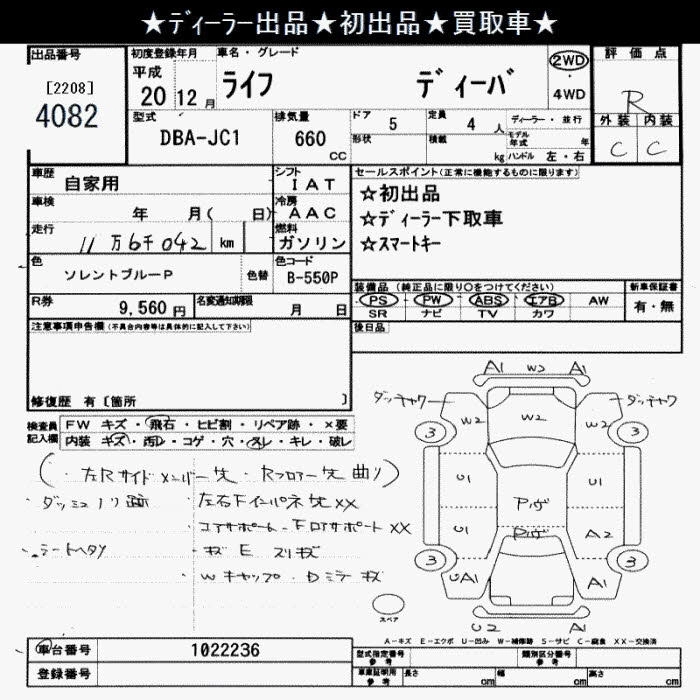 ★ディーラー出品★初出品★買取車★
出品番号 初度登録年月 車名・グレード 評価点
[2208] 平成 ライフ ディーバ 2WD
4082 20 12月 ・ 4WD R
型式 排気量 ドア 定員 ディーラー・並行 外装 内装
DBA-JC1 660 CC 5 4人 モデル年式 年 C C
形状 積載 kg ハンドル 左・右
車歴 自家用 シフト IAT セールスポイント(正常に機能するものに限ります)
車検 年 月( 日) 冷房 AAC ☆初出品
走行 11万6千042 km 燃料 ガソリン ☆ディーラー下取車
☆スマートキー
色 ソレントブルーP 色替 色コード B-550P
装備品(純正品に限り○をつけてください) 新車保証書
R券 9,560円 名変通知期限 月 日 PS PW ABS エアB AW 有・無
SR ナビ TV カワ
注意事項申告欄(不具合内容等は具体的に記入して下さい) 後日品
修復歴 有〔箇所 〕
検査員記入欄 FW キズ・飛石・ヒビ割・リペア跡・×要
内装 キズ・汚レ・コゲ・穴・スレ・キレ・破レ
(・左Rサイドメンバー 曲り)
・ダッシュノリ跡 ・左右Fインパネ XX
コアサポート・FロアサポートXX
・キズ E スリキズ
Wキャップ・Dミラーキズ
A1 W2 A1
W2 W2 W2
3 3
U1 U1
U1 A2
3 3
UA1 A1
U2 A1
スペア
A-キズ E-エクボ U-凹み W-補修跡 S-サビ C-腐食 XX-交換済
車台番号 1022236 型式指定番号 参考 類別区分番号 参考
登録番号 車庫証明用 参考 長さ cm 幅 cm 高さ cm